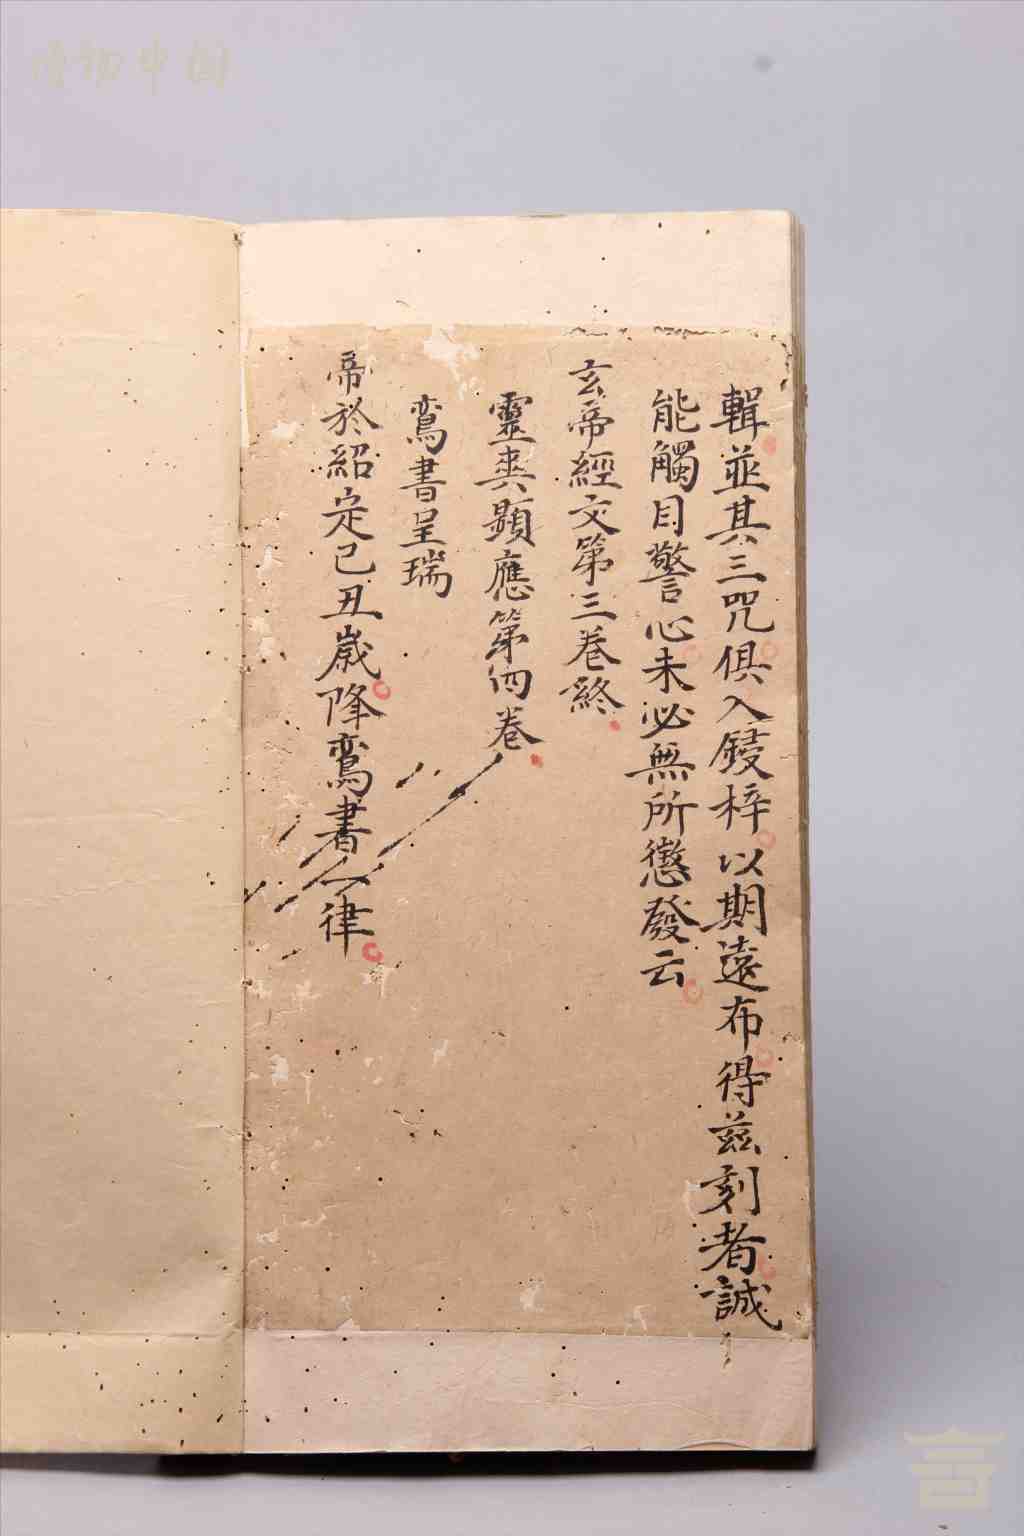 輯並其三咒俱入鋟梓以期遠布得茲刻者誠
能觸目警心未必無所懲發云
玄帝經文第三卷終
靈異顯應第四卷
鸞書呈瑞
帝於紹定己丑歲降鸞書一律
博物中国